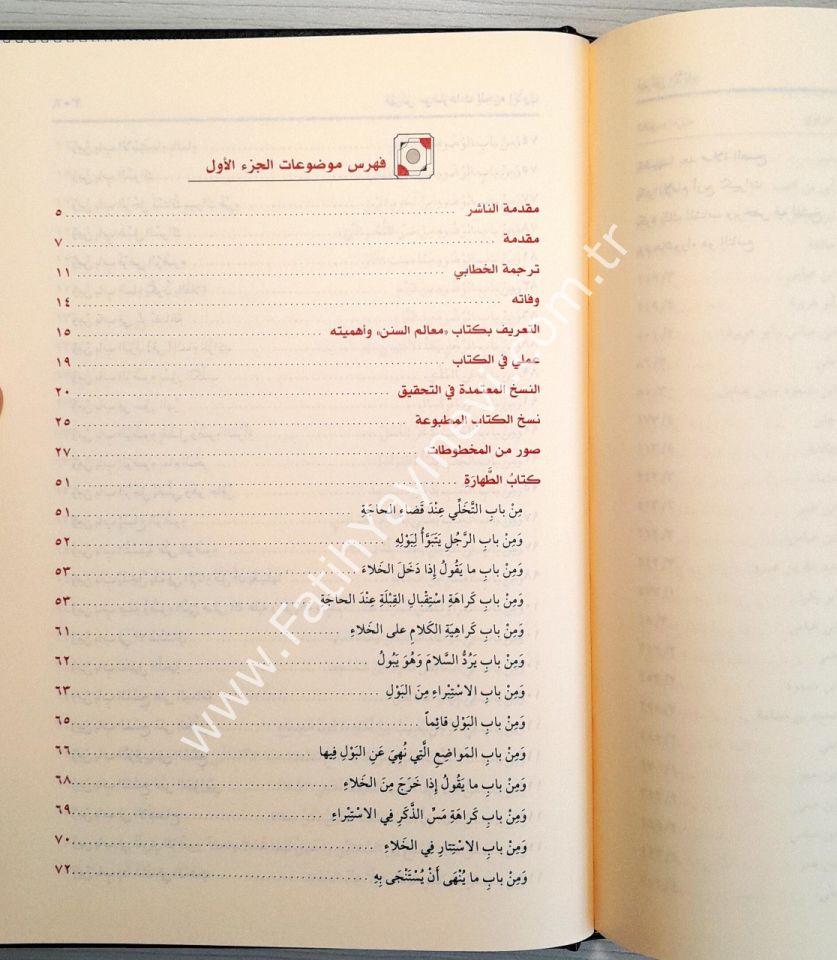 فهرس موضوعات الجزء الأول
مقدمة الناشر ٥
مقدمة ٧
ترجمة الخطابي ١١
وفاته ١٤
التعريف بكتاب «معالم السنن» وأهميته ١٥
عملي في الكتاب ١٩
النسخ المعتمدة في التحقيق ٢٠
نسخ الكتاب المطبوعة ٢٥
صور من المخطوطات ٢٧
كتابُ الطَّهارَةِ ٥١
مِنْ بابِ التَّخَلِّي عِنْدَ قَضاءِ الحاجَةِ ٥١
وَمِنْ بابِ الرَّجُلِ يَتَبَوَّأُ لِبَوْلِهِ ٥٢
وَمِنْ بابِ ما يَقُولُ إِذا دَخَلَ الخَلاءَ ٥٣
وَمِنْ بابِ كَراهَةِ اسْتِقْبالِ القِبْلَةِ عِنْدَ الحاجَةِ ٥٣
وَمِنْ بابِ كَراهِيَةِ الكَلامِ على الخَلاءِ ٦١
وَمِنْ بابِ يَرُدُّ السَّلامَ وَهُوَ يَبُولُ ٦٢
وَمِنْ بابِ الاسْتِبْراءِ مِنَ البَوْلِ ٦٣
وَمِنْ بابِ البَوْلِ قائِماً ٦٥
وَمِنْ بابِ المَواضِعِ الَّتي نُهِيَ عَنِ البَوْلِ فِيها ٦٦
وَمِنْ بابِ ما يَقُولُ إِذا خَرَجَ مِنَ الخَلاءِ ٦٨
وَمِنْ بابِ كَراهَةِ مَسِّ الذَّكَرِ فِي الاسْتِبْراءِ ٦٩
وَمِنْ بابِ الاسْتِتارِ فِي الخَلاءِ ٧٠
وَمِنْ بابِ ما يُنْهَى أَنْ يُسْتَنْجَى بِهِ ٧٢
www.FatihYayinevi.com.tr